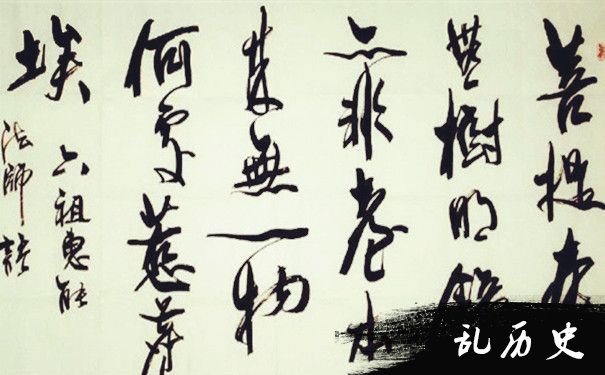 菩提本
無樹明鏡
亦非臺本
來無一物
何處惹塵
埃
六祖惠能
法師語
乱历史